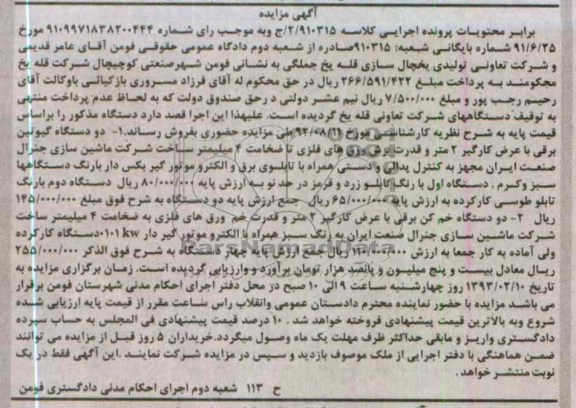 آگهی مزایده
برابر محتویات پرونده اجرایی کلاسه ۲/۹۱۰۳۱۵/ج وبه موجب رای شماره ۹۱۰۹۹۷۱۸۳۸۲۰۰۴۴۴ مورخ
۹۱/۶/۲۵ شماره بایگانی شعبه: ۹۱۰۳۱۵صادره از شعبه دوم دادگاه عمومی حقوقی فومن آقای عامر قدیمی
و شرکت تعاونی تولیدی یخچال سازی قله یخ جملگی به نشانی فومن شهرصنعتی کوچیچال شرکت قله یخ
محکومند به پرداخت مبلغ ۲۶۶/۵۹۱/۴۲۲ ریال در حق محکوم له آقای فرزاد مسروری بازکیائی باوکالت آقای
رحیم رجب پور و مبلغ ۷/۵۰۰/۰۰۰ ریال نیم عشر دولتی د رحق صندوق دولت که به لحاظ عدم پرداخت منتهی
به توقیف دستگاههای شرکت تعاونی قله یخ گردیده است. علیهذا این اجرا قصد دارد دستگاه مذکور را براساس
قیمت پایه به شرح نظریه کارشناسی مورخ ۹۲/۰۸/۱۱ طی مزایده حضوری بفروش رساند.۱- دو دستگاه گیوتین
برقی با عرض کارگیر ۲ متر و قدرت برش ورق های فلزی تا ضخامت ۴ میلیمتر ساخت شرکت ماشین سازی جنرال
صنعت ایران مجهز به کنترل پدالی و دستی همراه با تابلوی برق و الکترو موتور گیر بکس دار بارنگ دستگاهها
سبز وکرم . دستگاه اول با رنگ تابلو زرد و قرمز در حد نو به ارزش پایه ۸۰/۰۰۰/۰۰۰ ریال دستگاه دوم بارنگ
تابلو طوسی کارکرده به ارزش پایه ۶۵/۰۰۰/۰۰۰ ریال جمع ارزش پایه دو دستگاه به شرح فوق مبلغ ۱۴۵/۰۰۰/۰۰۰
ریال ۲- دو دستگاه خم کن برقی با عرض کارگیر ۲ متر و قدرت خم ورق های فلزی به ضخامت ۴ میلیمتر ساخت
شرکت ماشین سازی جنرال صنعت ایران به رنگ سبز همراه با الکترو موتور گیر دار ۱۰۱kw دستگاه کارکرده
ولی آماده به کار جمعا به ارزش ۱۱۰/۰۰۰/۰۰۰ ریال جمع ارزش پایه چهار دستگاه به شرح فوق الذکر ۲۵۵/۰۰۰/۰۰۰
ریال معادل بیست و پنج میلیون و پانصد هزار تومان برآورد و وارزیابی گردیده است. زمان برگزاری مزایده به
تاریخ ۱۳۹۳/۰۲/۱۰ روز چهارشنبه ساعت ۹ الی ۱۰ صبح در محل دفتر اجرای احکام مدنی شهرستان فومن برقرار
می باشد مزایده با حضور نماینده محترم دادستان عمومی وانقلاب راس ساعت مقرر از قیمت پایه ارزیابی شده
شروع وبه بالاترین قیمت پیشنهادی فروخته خواهد شد . ۱۰ درصد قیمت پیشنهادی فی المجلس به حساب سپرده
دادگستری واریز و مابقی حداکثر ظرف مهلت یک ماه وصول میگردد.خریداران ۵ روز قبل از مزایده می توانند
ضمن هماهنگی با دفتر اجرایی از ملک موصوف بازدید و سپس در مزایده شرکت نمایند .این آگهی فقط در یک
نوبت منتشر خواهد .
ح ۱۱۳ شعبه دوم اجرای احکام مدنی دادگستری فومن
ParsNamadData